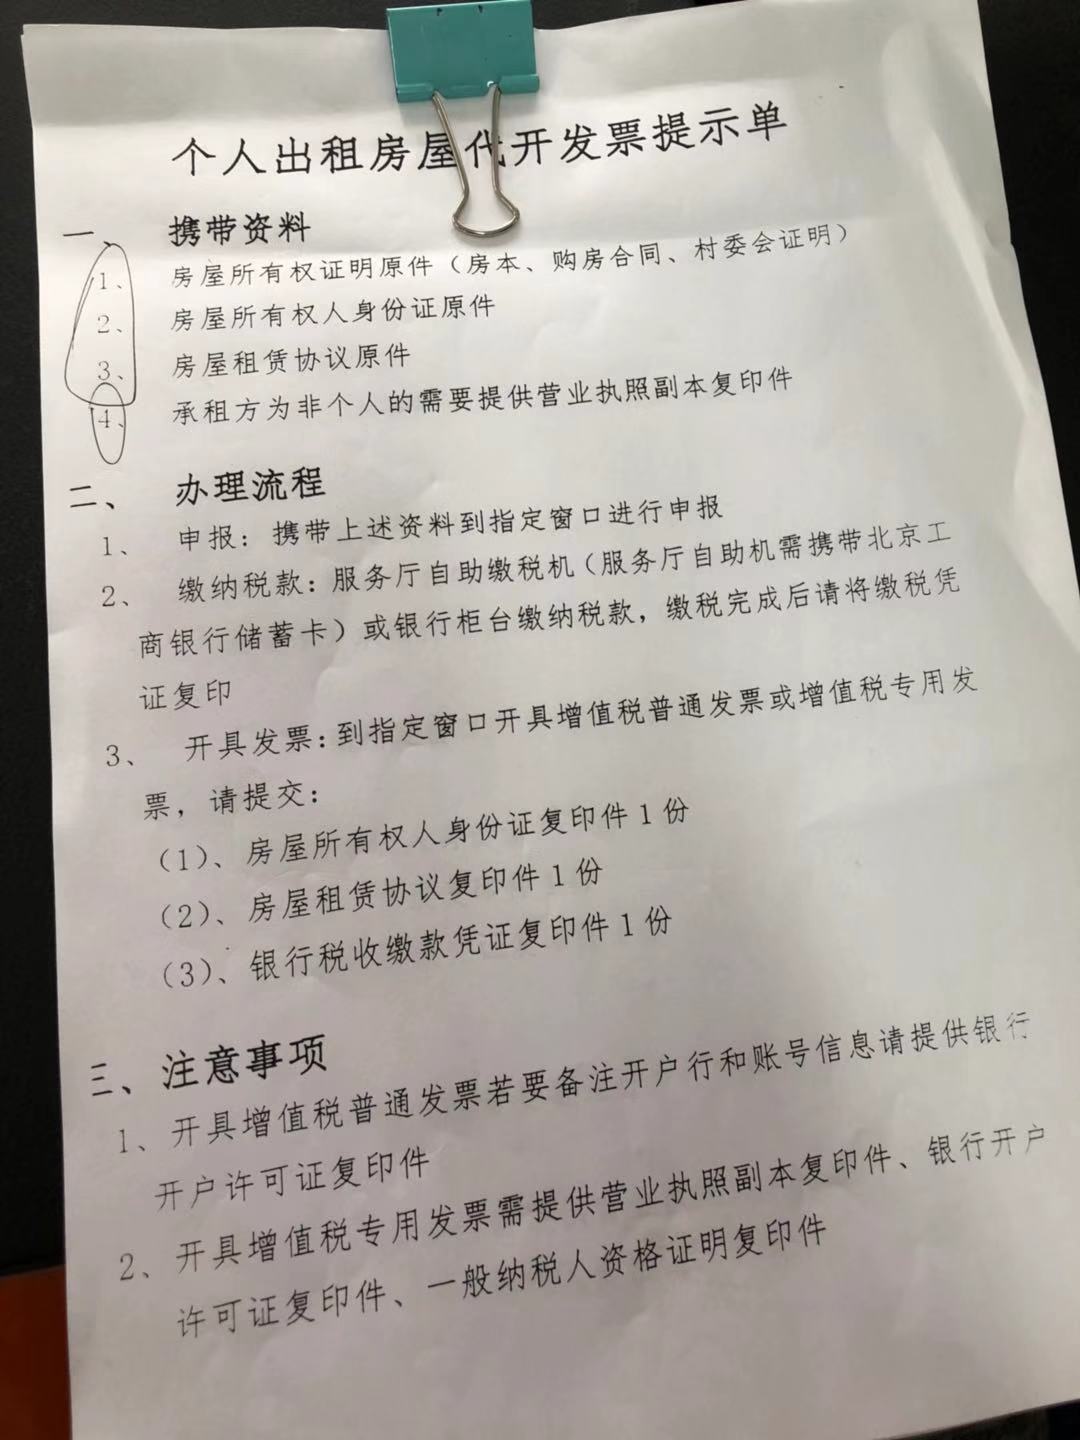 个人出租房屋代开发票提示单
一 携带资料
1、 房屋所有权证明原件（房本、购房合同、村委会证明）
2、 房屋所有权人身份证原件
3、 房屋租赁协议原件
4、 承租方为非个人的需要提供营业执照副本复印件
二、 办理流程
1、 申报：携带上述资料到指定窗口进行申报
2、 缴纳税款：服务厅自助缴税机（服务厅自助机需携带北京工
商银行储蓄卡）或银行柜台缴纳税款，缴税完成后请将缴税凭
证复印
3、 开具发票：到指定窗口开具增值税普通发票或增值税专用发
票，请提交：
（1）、房屋所有权人身份证复印件1份
（2）、房屋租赁协议复印件1份
（3）、银行税收缴款凭证复印件1份
三、注意事项
1、开具增值税普通发票若要备注开户行和账号信息请提供银行
开户许可证复印件
2、开具增值税专用发票需提供营业执照副本复印件、银行开户
许可证复印件、一般纳税人资格证明复印件